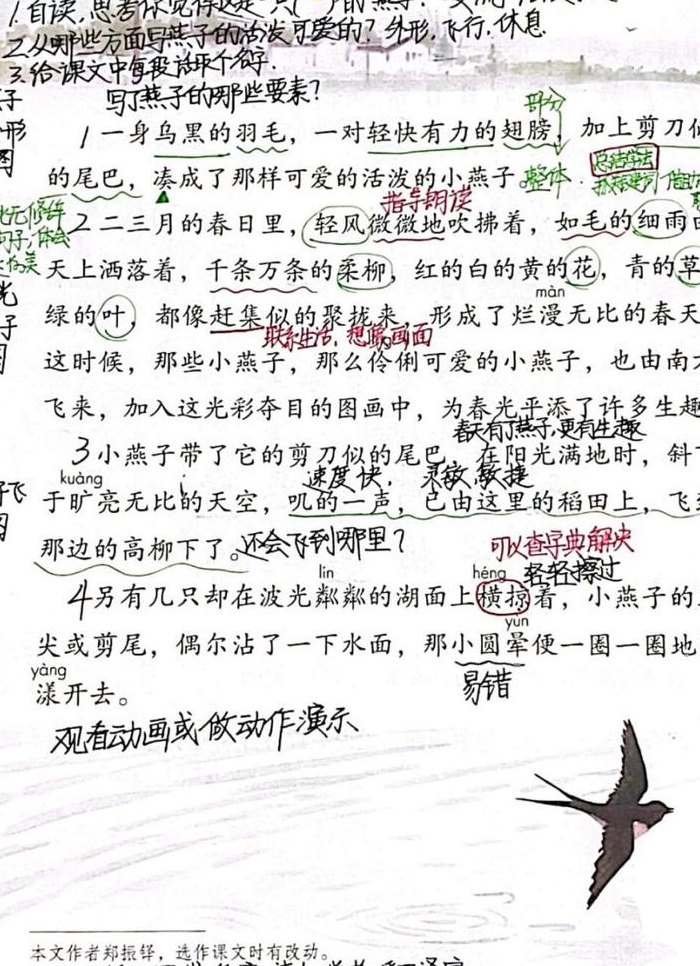 1.自读,思考你觉得这是一只
2.从哪些方面写燕子的活泼可爱的?外形,飞行,休息
3.给课文中每段话取个名字.
写了燕子的哪些要素?
部分
1一身乌黑的羽毛,一对轻快有力的翅膀,加上剪刀似
的尾巴,凑成了那样可爱的活泼的小燕子。整体
总结写法
指导朗读
2二三月的春日里,轻风微微地吹拂着,如毛的细雨由
天上洒落着,千条万条的柔柳,红的白的黄的花,青的草
màn
绿的叶,都像赶集似的聚拢来,形成了烂漫无比的春天
联系生活,想象画面
这时候,那些小燕子,那么伶俐可爱的小燕子,也由南方
飞来,加入这光彩夺目的图画中,为春光平添了许多生趣
春天有了燕子,更有生趣
3小燕子带了它的剪刀似的尾巴,在阳光满地时,斜飞
kuàng
速度快. 灵敏,敏捷
于旷亮无比的天空,叽的一声,已由这里的稻田上,飞到
那边的高柳下了。还会飞到哪里?
可以查字典解决
轻轻擦过
lín héng
4另有几只却在波光粼粼的湖面上横掠着,小燕子的
yùn
尖或剪尾,偶尔沾了一下水面,那小圆晕便一圈一圈地
yàng
漾开去。
易错
观看动画或做动作演示
本文作者郑振铎,选作课文时有改动。